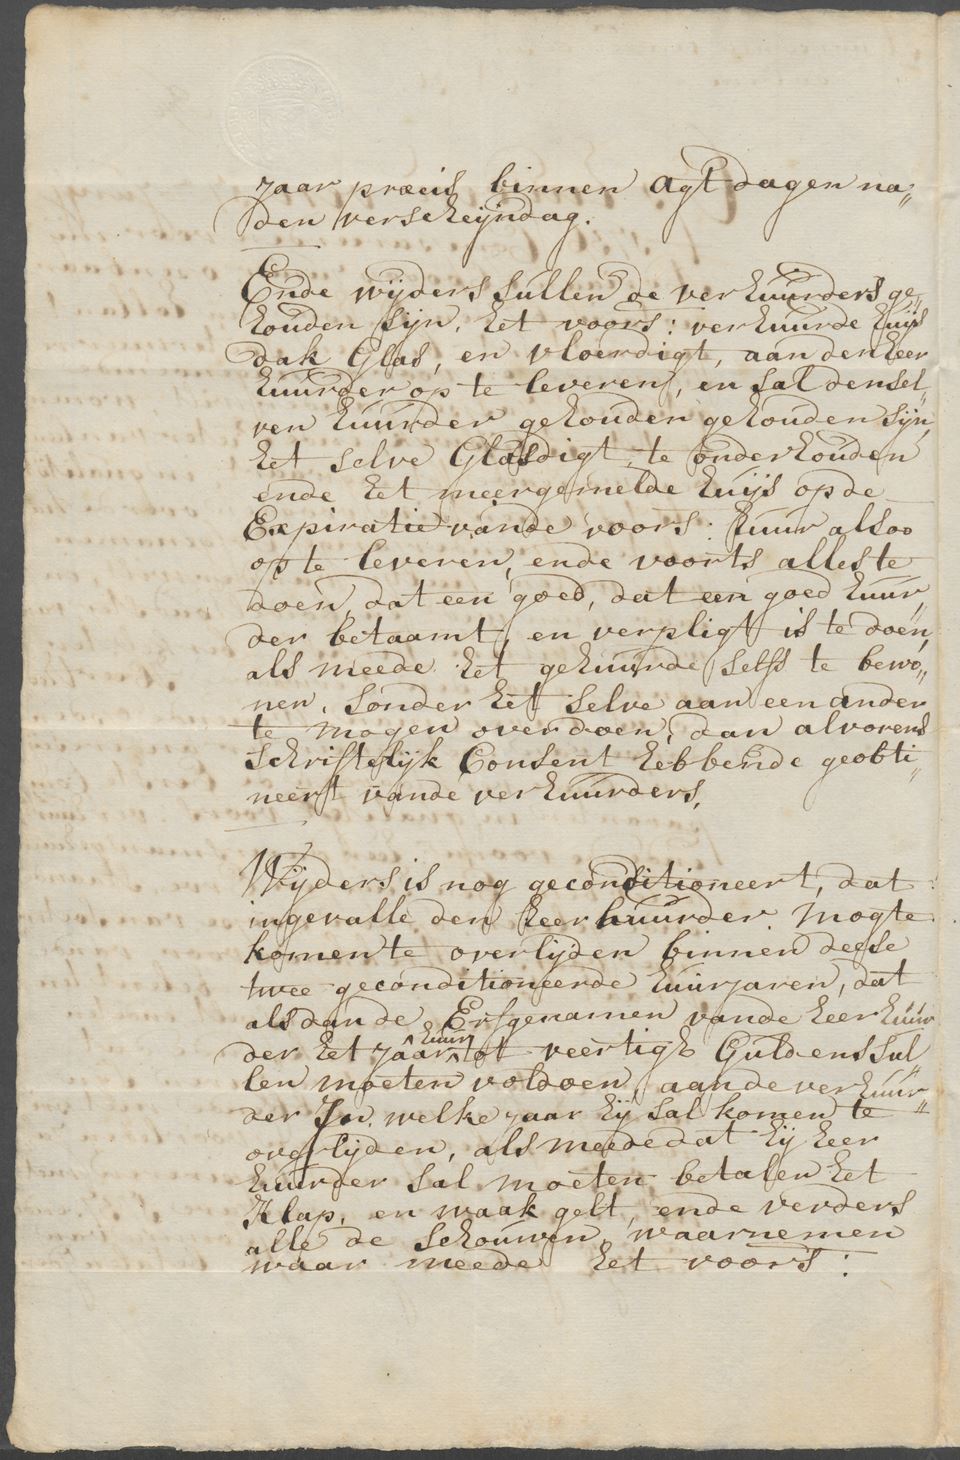 jaar præcis binnen agt dagen na„
den verscheijndag.
Ende wijders sullen de verhuurders ge„
houden sijn, het voors: verhuurde huijs
dak Glas, en vloerdigt, aan den heer
huurder op te leveren, en sal den sel„
ven huurder gehouden gehouden sijn,
het selve Glasdigt, te onderhouden
ende het meergemelde huijs op de
Expiratie vande voors: huur alsoo
op te leveren, ende voorts alles te
doen, dat een goed, dat een goed huur„
der betaamt, en verpligt is te doen,
als meede het gehuurde selfs te bewo„
nen, sonder het selve aan een ander
te mogen overdoen, dan alvorens
schriftelijk Consent hebbende geobti„
neert vande verhuurders,
Wijders is nog geconditioneert, dat
ingevalle den heer huurder mogte
komen te overlijden binnen deese
twee geconditioneerde huurjaren, dat
als dan de Erfgenamen vande heer huur
der het jaar huur tot veertigh Guldens sul„
len moeten voldoen aan de verhuur„
der In welke jaar hij sal komen te
overlijden, als meede dat hij heer
huurder sal moeten betalen het
Klap, en waak gelt, ende verders
alle de schouwen, waarnemen
waar meede het voors: